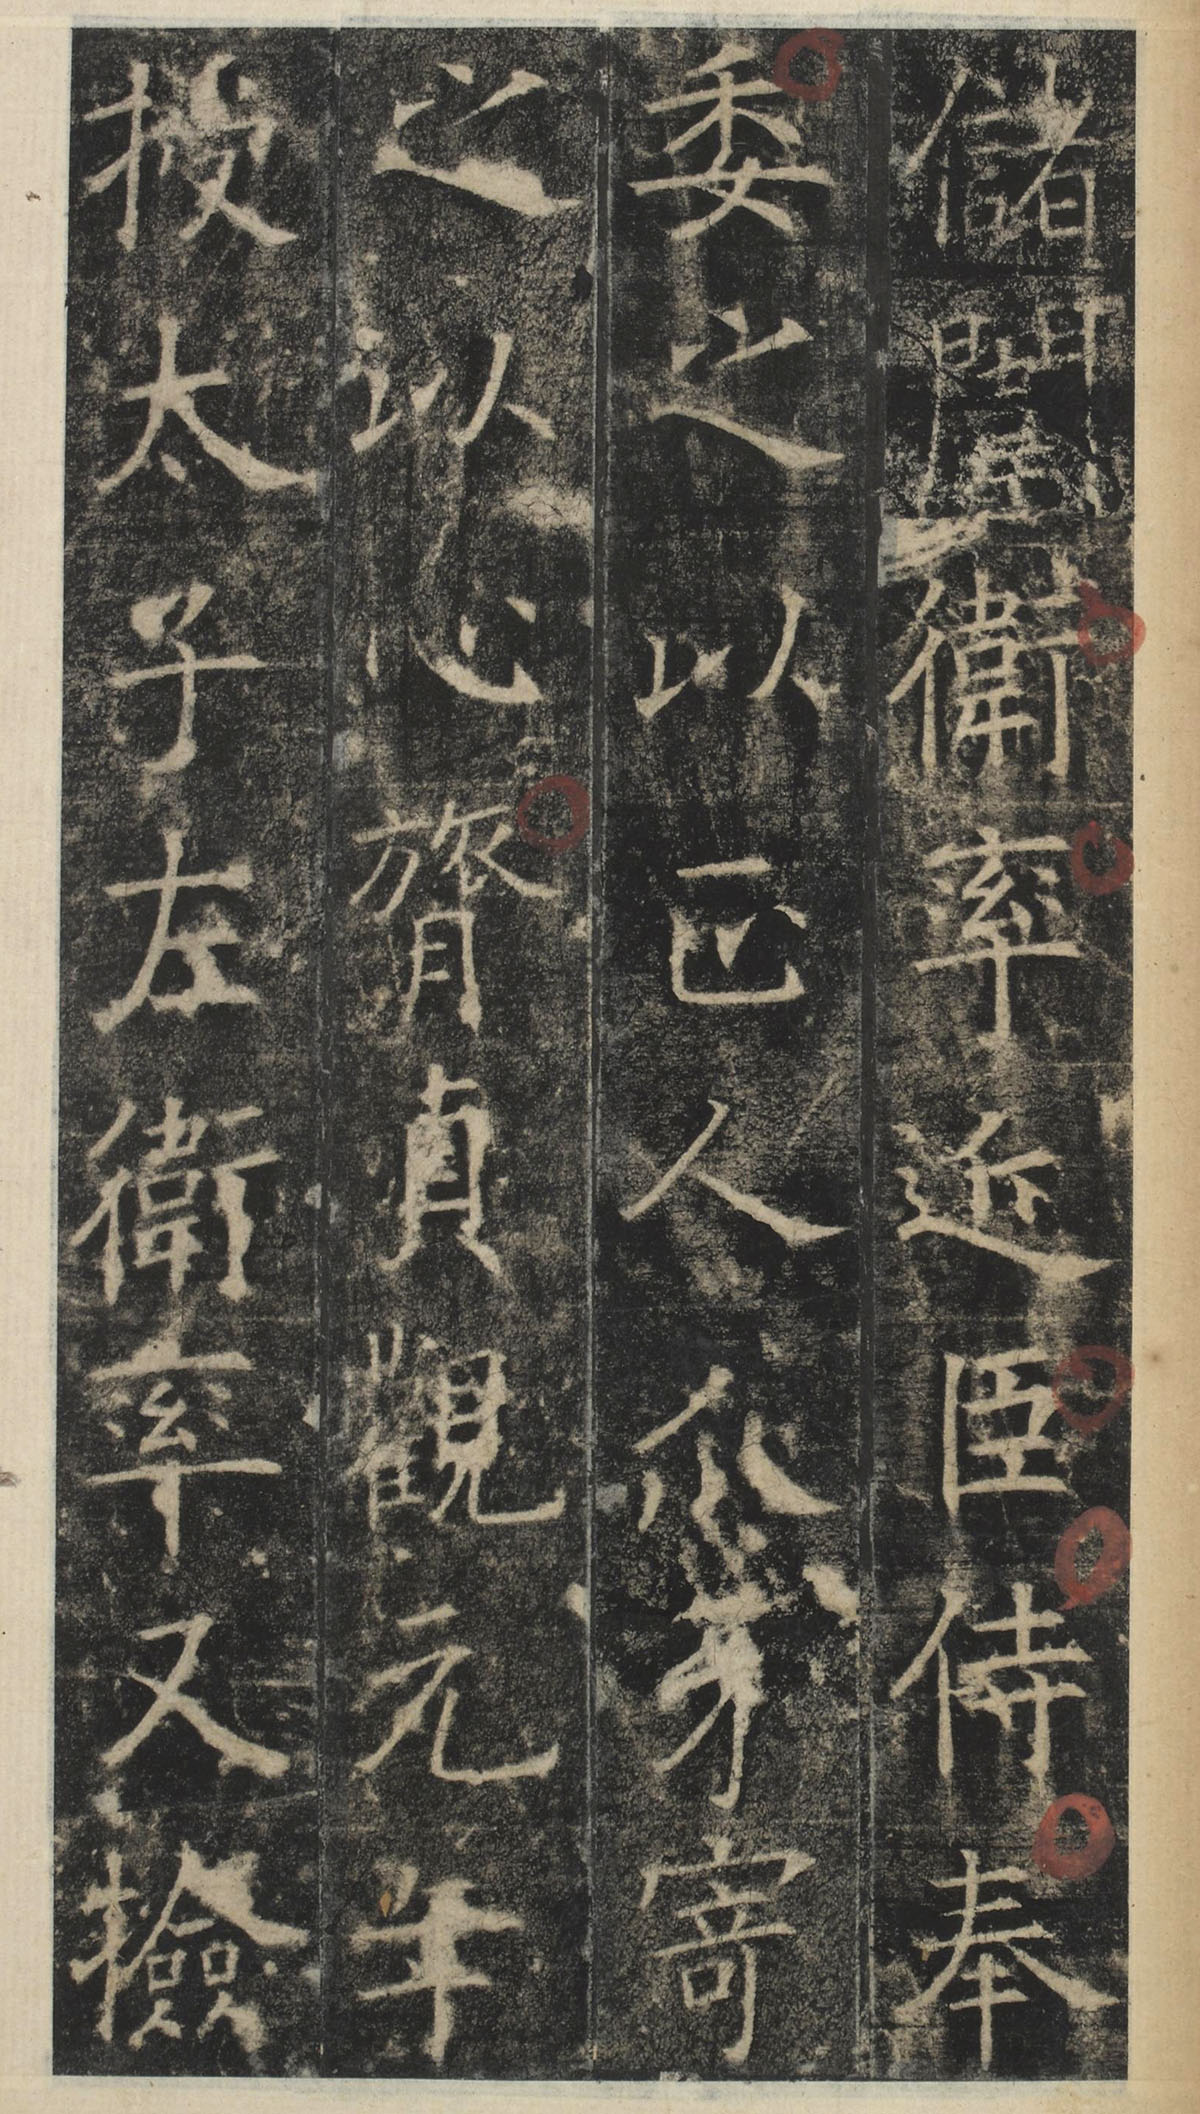 儲闈衛率近臣侍奉
委之以人爪牙寄
之以心膂貞觀元年
授太子左衛率又檢